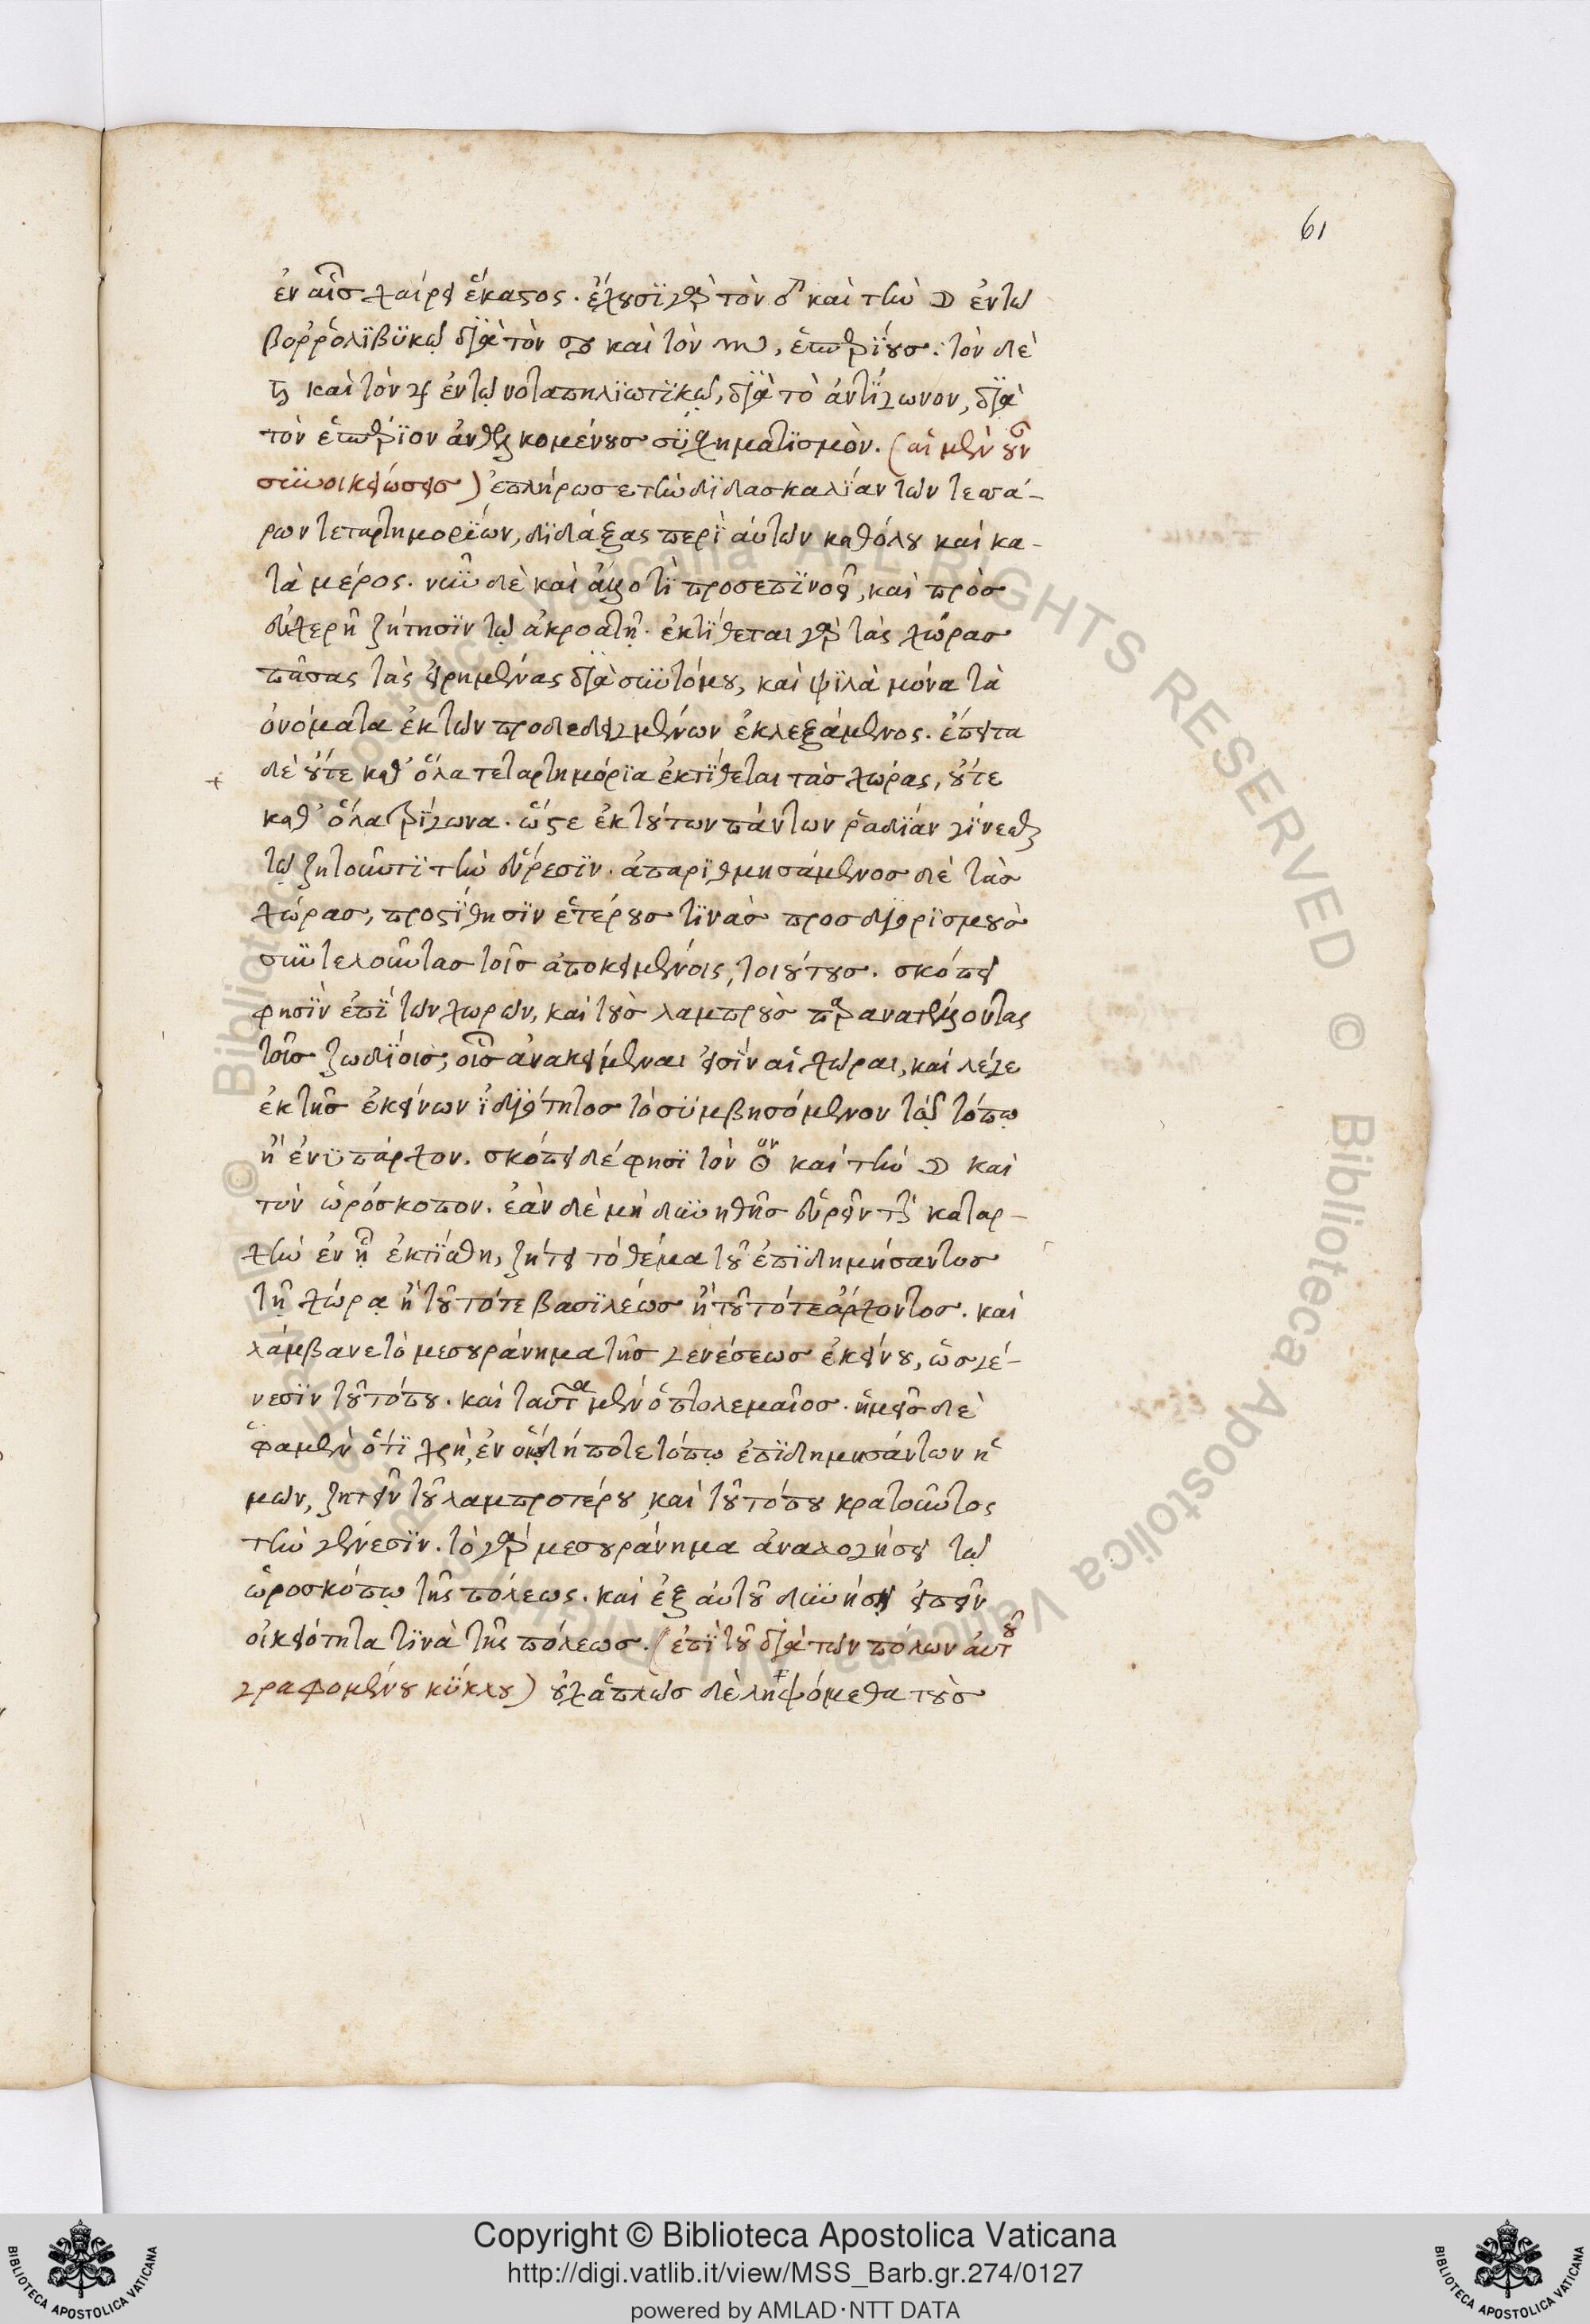 61
ἐν αἷς χαίρει ἕκαστος. ἔχουσι γὰρ τὸν ♂ καὶ τὴν ☽ ἐν τῷ
βορρολιβυκῷ διὰ τὸν ♉ καὶ τὸν ♏, ἑσπερίους. τὸν δὲ
♄ καὶ τὸν ♃ ἐν τῷ νοταπηλιωτικῷ, διὰ τὸ ἀντίγωνον, διὰ
τὸν ἑσπέριον σχηματισμὸν. (αἱ μὲν οὖν
συνοικειώσεις) ἐπλήρωσε τὴν διδασκαλίαν τῶν τεσσά-
ρων τεταρτημορίων, διδάξας περὶ αὐτῶν καθόλου καὶ κα-
τὰ μέρος. νῦν δὲ καὶ ἄλλο τι προσεπινοεῖ, καὶ πρὸς
εὐχερῆ ζήτησιν τῷ ἀκροατῇ. ἐκτίθεται γὰρ τὰς χώρας
πάσας τὰς εἰρημένας διὰ συντόμου, καὶ ψιλὰ μόνα τὰ
ὀνόματα ἐκ τῶν προδεδειγμένων ἐκλεξάμενος. ἔπειτα
+ δὲ οὔτε καθ' ὅλα τεταρτημόρια ἐκτίθεται τὰς χώρας, οὔτε
καθ' ὅλα τρίγωνα. ὥστε ἐκ τούτων πάντων ῥαδίαν γίνεσθαι
τῷ ζητοῦντι τὴν εὕρεσιν. ἀπαριθμησάμενος δὲ τὰς
χώρας, προστίθησιν ἑτέρους τινὰς προσδιορισμοὺς
συντελοῦντας τοῖς ἀποκειμένοις, τοιούτους. σκόπει
φησὶν ἐπὶ τῶν χωρῶν, καὶ τοὺς λαμπροὺς παρανατέλλοντας
τοῖς ζωδίοις, οἷς ἀνακείμεναι εἰσὶν αἱ χῶραι, καὶ λέγε
ἐκ τῆς ἐκείνων ἰδιότητος τὸ συμβησόμενον τῷδε τόπῳ
ἢ ἐνυπάρχον. σκόπει δέ φησι τὸν ☉ον καὶ τὴν ☽ καὶ
τὸν ὡρόσκοπον. ἐὰν δὲ μὴ δυνηθῇς εὑρεῖν τὴν καταρ-
χὴν ἐν ᾗ ἐκτίσθη, ζήτει τὸ θέμα τοῦ ἐπιδημήσαντος
τῇ χώρᾳ ἢ τοῦ τότε βασιλέως ἢ τοῦ τότε ἄρχοντος. καὶ
λάμβανε τὸ μεσουράνημα τῆς γενέσεως ἐκείνου, ὡς γέ-
νεσιν τοῦ τόπου. καὶ ταῦτα μὲν ὁ πτολεμαῖος. ἡμεῖς δὲ
φαμὲν ὅτι χρὴ, ἐν οἵῳ δήποτε τόπῳ ἐπιδημησάντων ἡ
μῶν, ζητεῖν τοῦ λαμπροτέρου καὶ τοῦ τόπου κρατοῦντος
τὴν γένεσιν. τὸ γὰρ μεσουράνημα ἀναλογήσει τῷ
ὡροσκόπῳ τῆς πόλεως. καὶ ἐξ αὐτοῦ δυνήσῃ εἰπεῖν
οἰκειότητα τινὰ τῆς πόλεως. (ἐπὶ τοῦ διὰ τῶν πόλων αὐτοῦ
γραφομένου κύκλου) οὐχ ἁπλῶς δὲ ληψόμεθα τοὺς
Copyright © Biblioteca Apostolica Vaticana
http://digi.vatlib.it/view/MSS_Barb.gr.274/0127
powered by AMLAD·NTT DATA